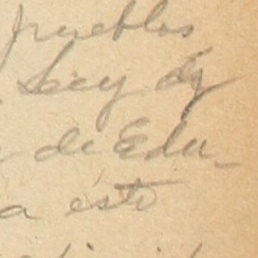 pueblos
Ley de
de Edu-
a este